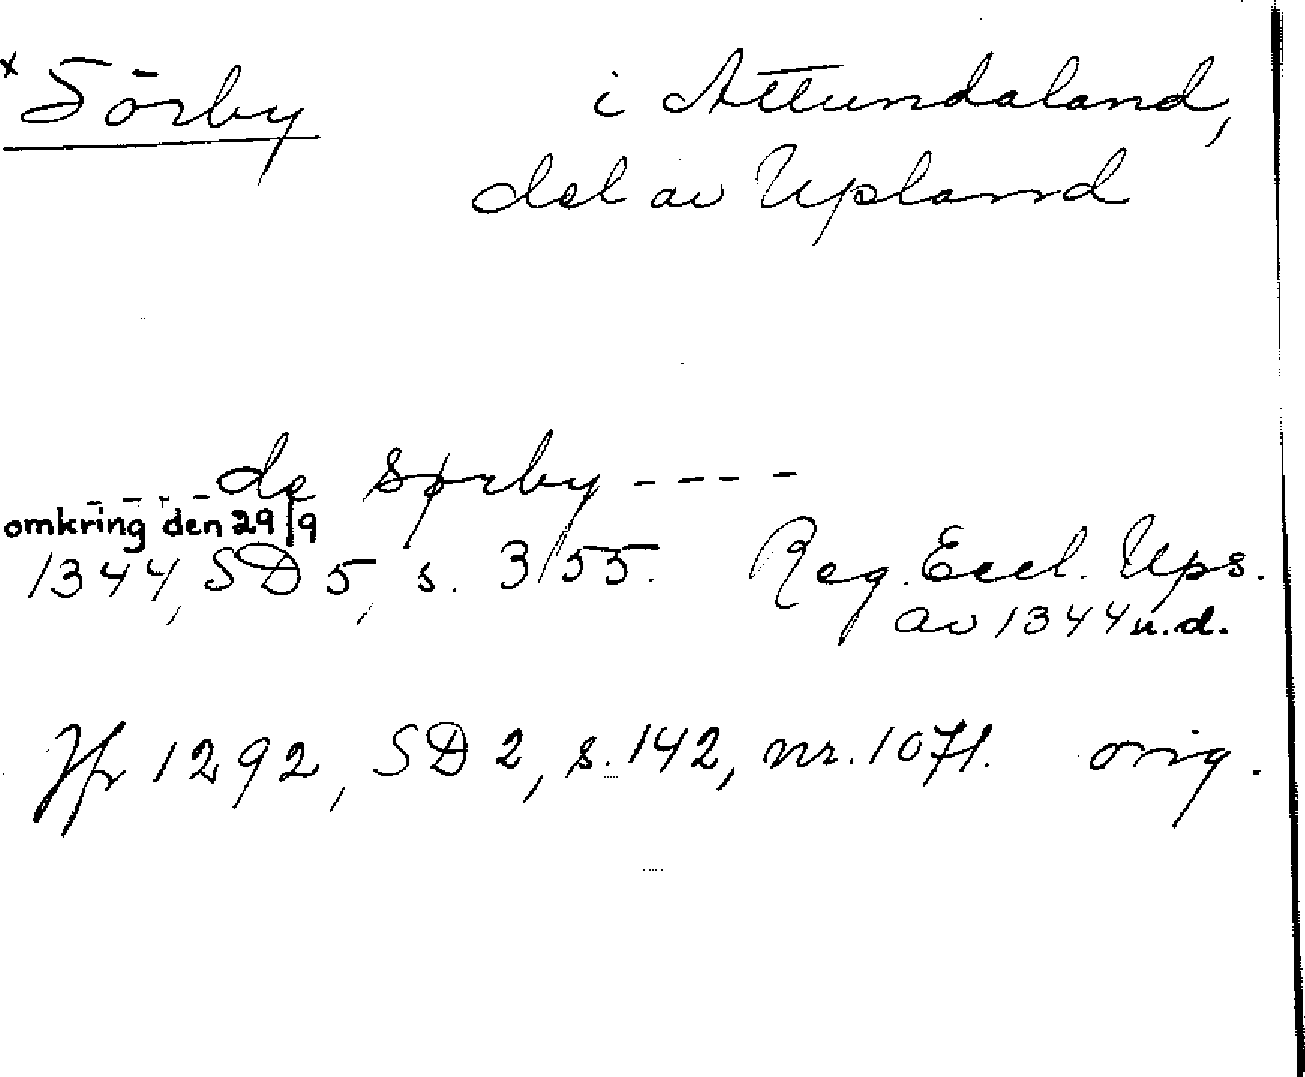 x Sörby i Attundaland,
del av Upland
- - - - de Sørby - - - -
omkring den 29/9
1344, SD 5, s. 355. Reg. Eccl. Ups.
av 1344 n.d.
Jfr 1292, SD 2, s. 142, nr. 1071. orig.